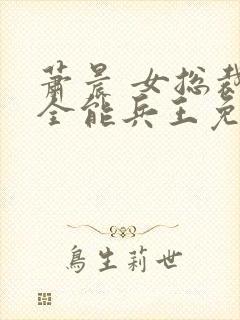 萧晨 女总裁
全能兵王免
鸟生莉世